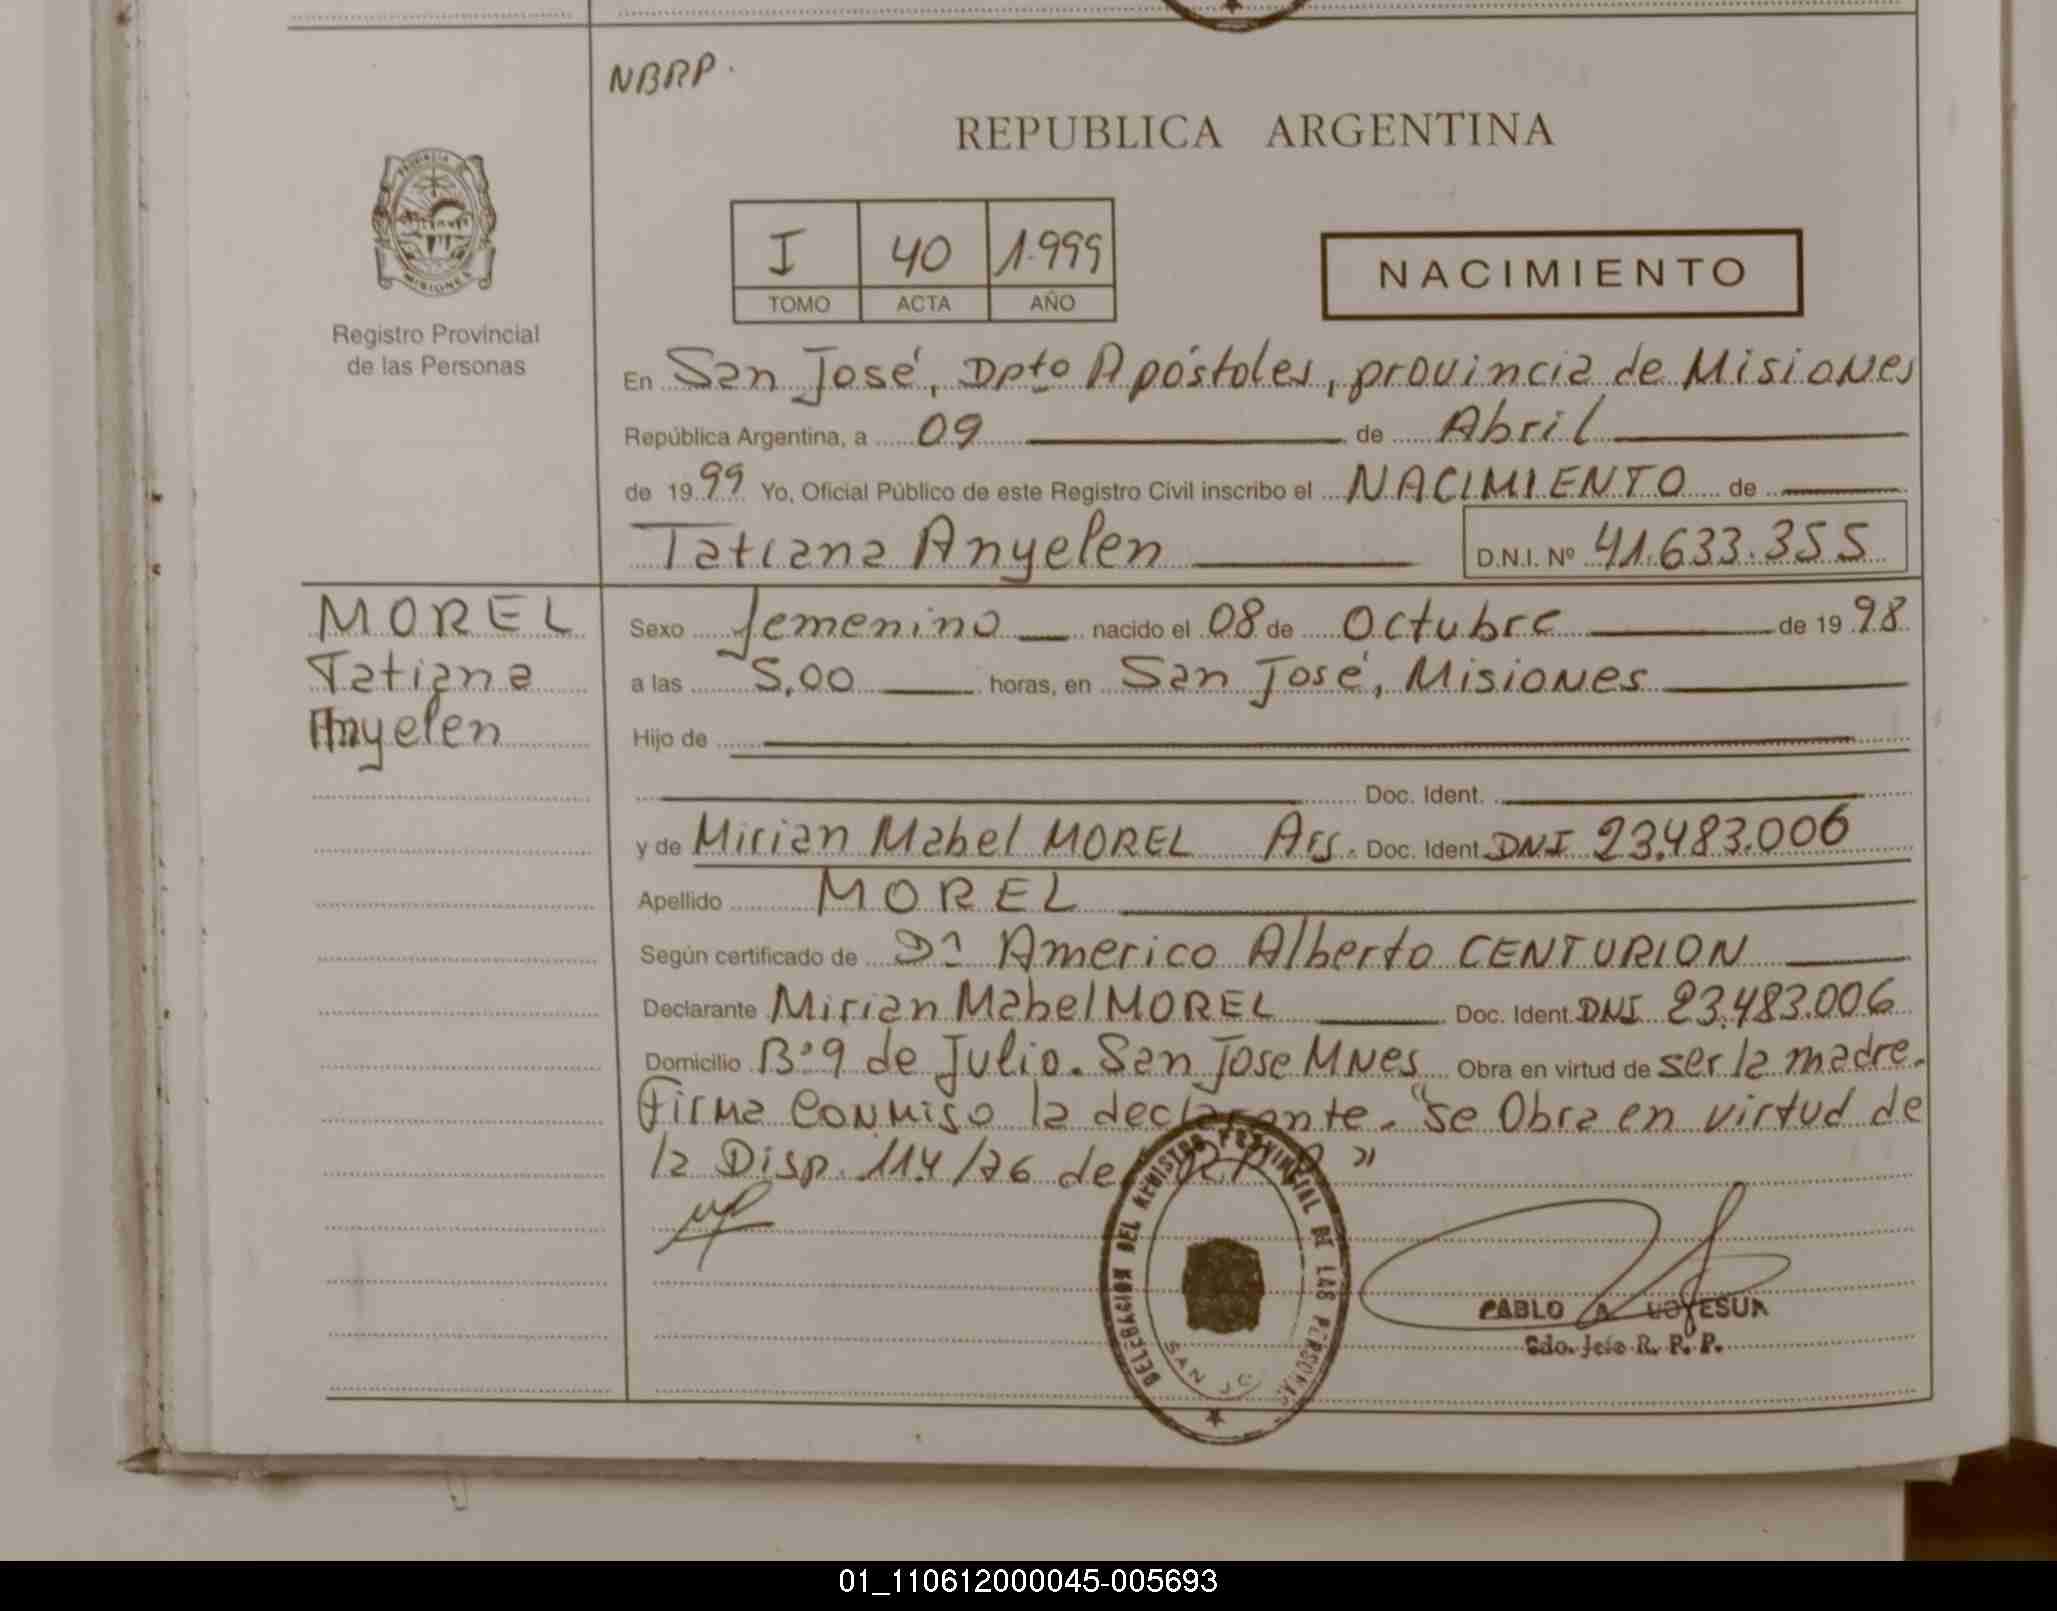 NBRP.
REPUBLICA ARGENTINA
PROVINCIA
MISIONES
Registro Provincial
de las Personas
I 40 1.999
TOMO ACTA AÑO
NACIMIENTO
En San José, Dpto Apóstoles, provincia de Misiones
República Argentina, a 09 de Abril
de 1999 Yo, Oficial Público de este Registro Civil inscribo el NACIMIENTO de
Tatiana Anyelen D.N.I. Nº 41.633.355
MOREL
Tatiana
Anyelen
Sexo femenino nacido el 08 de Octubre de 1998
a las 5,00 horas, en San José, Misiones
Hijo de
Doc. Ident.
y de Mirian Mabel MOREL Arg. Doc. Ident. DNI 23.483.006
Apellido MOREL
Según certificado de Americo Alberto CENTURION
Declarante Mirian Mabel MOREL Doc. Ident. DNI 23.483.006
Domicilio Bº 9 de Julio. San Jose MNes Obra en virtud de ser la madre.
Firma conmigo la declarante. "Se Obra en virtud de
la Disp. 114/76 de "
DELEGACION DEL REGISTRO PROVINCIAL DE LAS PERSONAS
SAN JO
PABLO A
R. P. P.
01_110612000045-005693